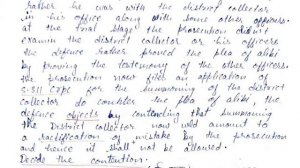 rather he was with the district collector
in his office along with some other officers.
at the trial stage the prosecution didn't
examin the district collector or his officers
the defence rather proved the plea of alibi
by proving the testemony of the other officers.
the prosecution now files an application of
S-311 CrPC for the summoning of the district
collector to counter the plea of alibi. the
defence objects by contending that summoning
the District collector now will amount to
rectification of mistake by the prosecution
and hence it shall not be allowed.
Decide the contention.